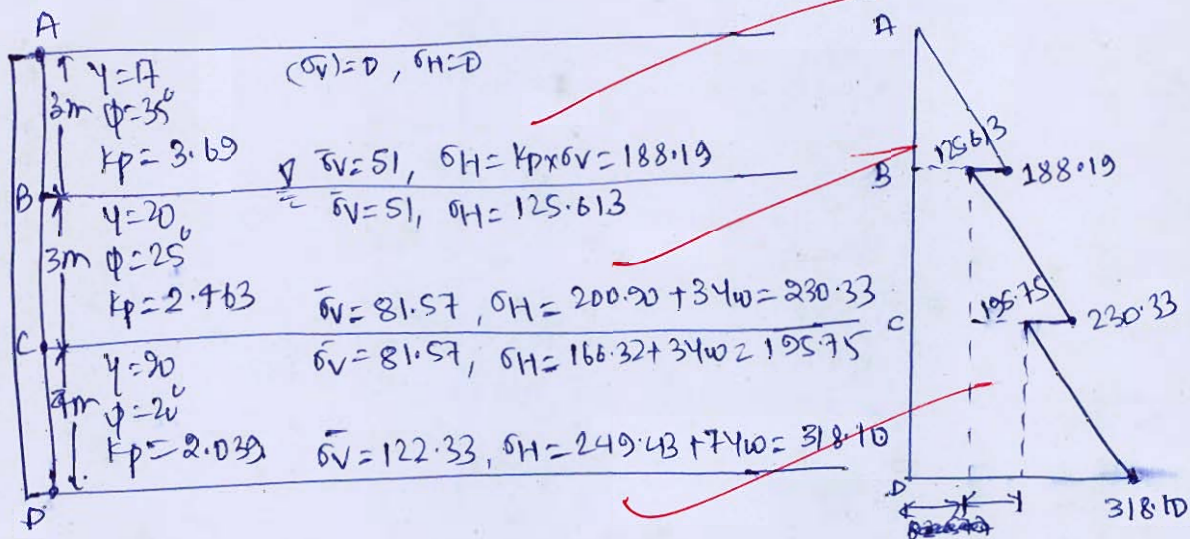 A
γ=17 (σv)=0, σH=0
3m φ=35°
kp=3.69 σ̄v=51, σH=kp×σv=188.19
B
γ=20 σ̄v=51, σH=125.613
3m φ=25°
kp=2.463 σ̄v=81.57, σH=200.90+3γw=230.33
C
γ=20 σ̄v=81.57, σH=166.32+3γw=195.75
4m φ=20°
kp=2.039 σ̄v=122.33, σH=249.43+7γw=318.10
D
A
125.613
B 188.19
195.75
C 230.33
D
318.10